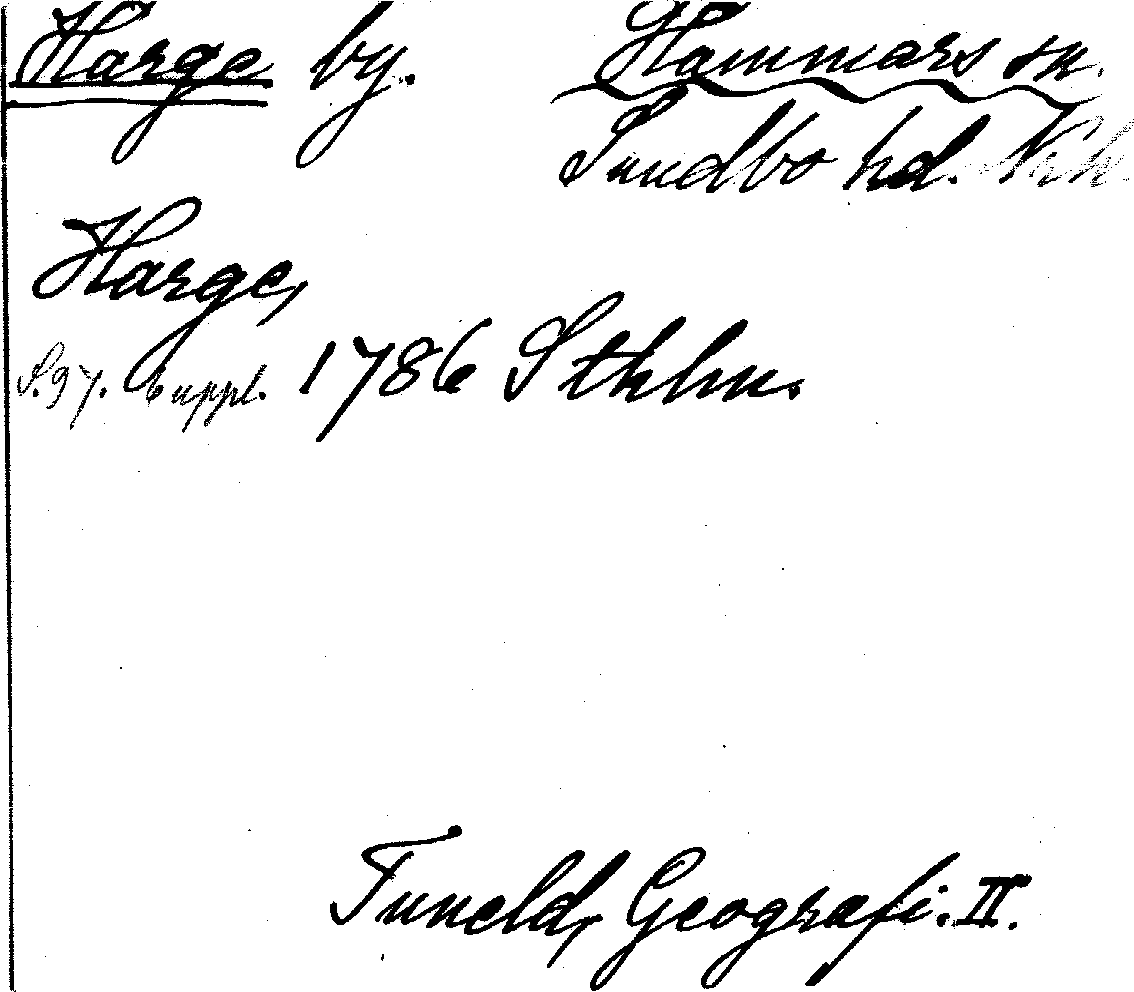 Harge by. Hammars sn.
Sundbo hd. Nrk.
Harge,
S. 97. Suppl. 1786 Sthlm.
Tuneld, Geografi. II.